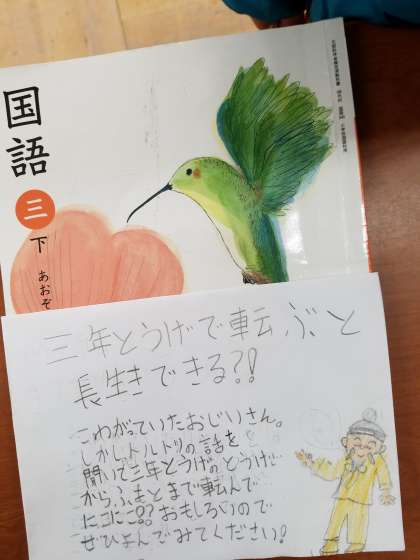 国語
三
下
あおぞ
三年とうげで転ぶと
長生きできる?!
こわがっていたおじいさん。
しかしトルトリの話を
聞いて三年とうげのとうげで
からふもとまで転んで
にこにこ!?おもしろいので
ぜひよんでみてください!